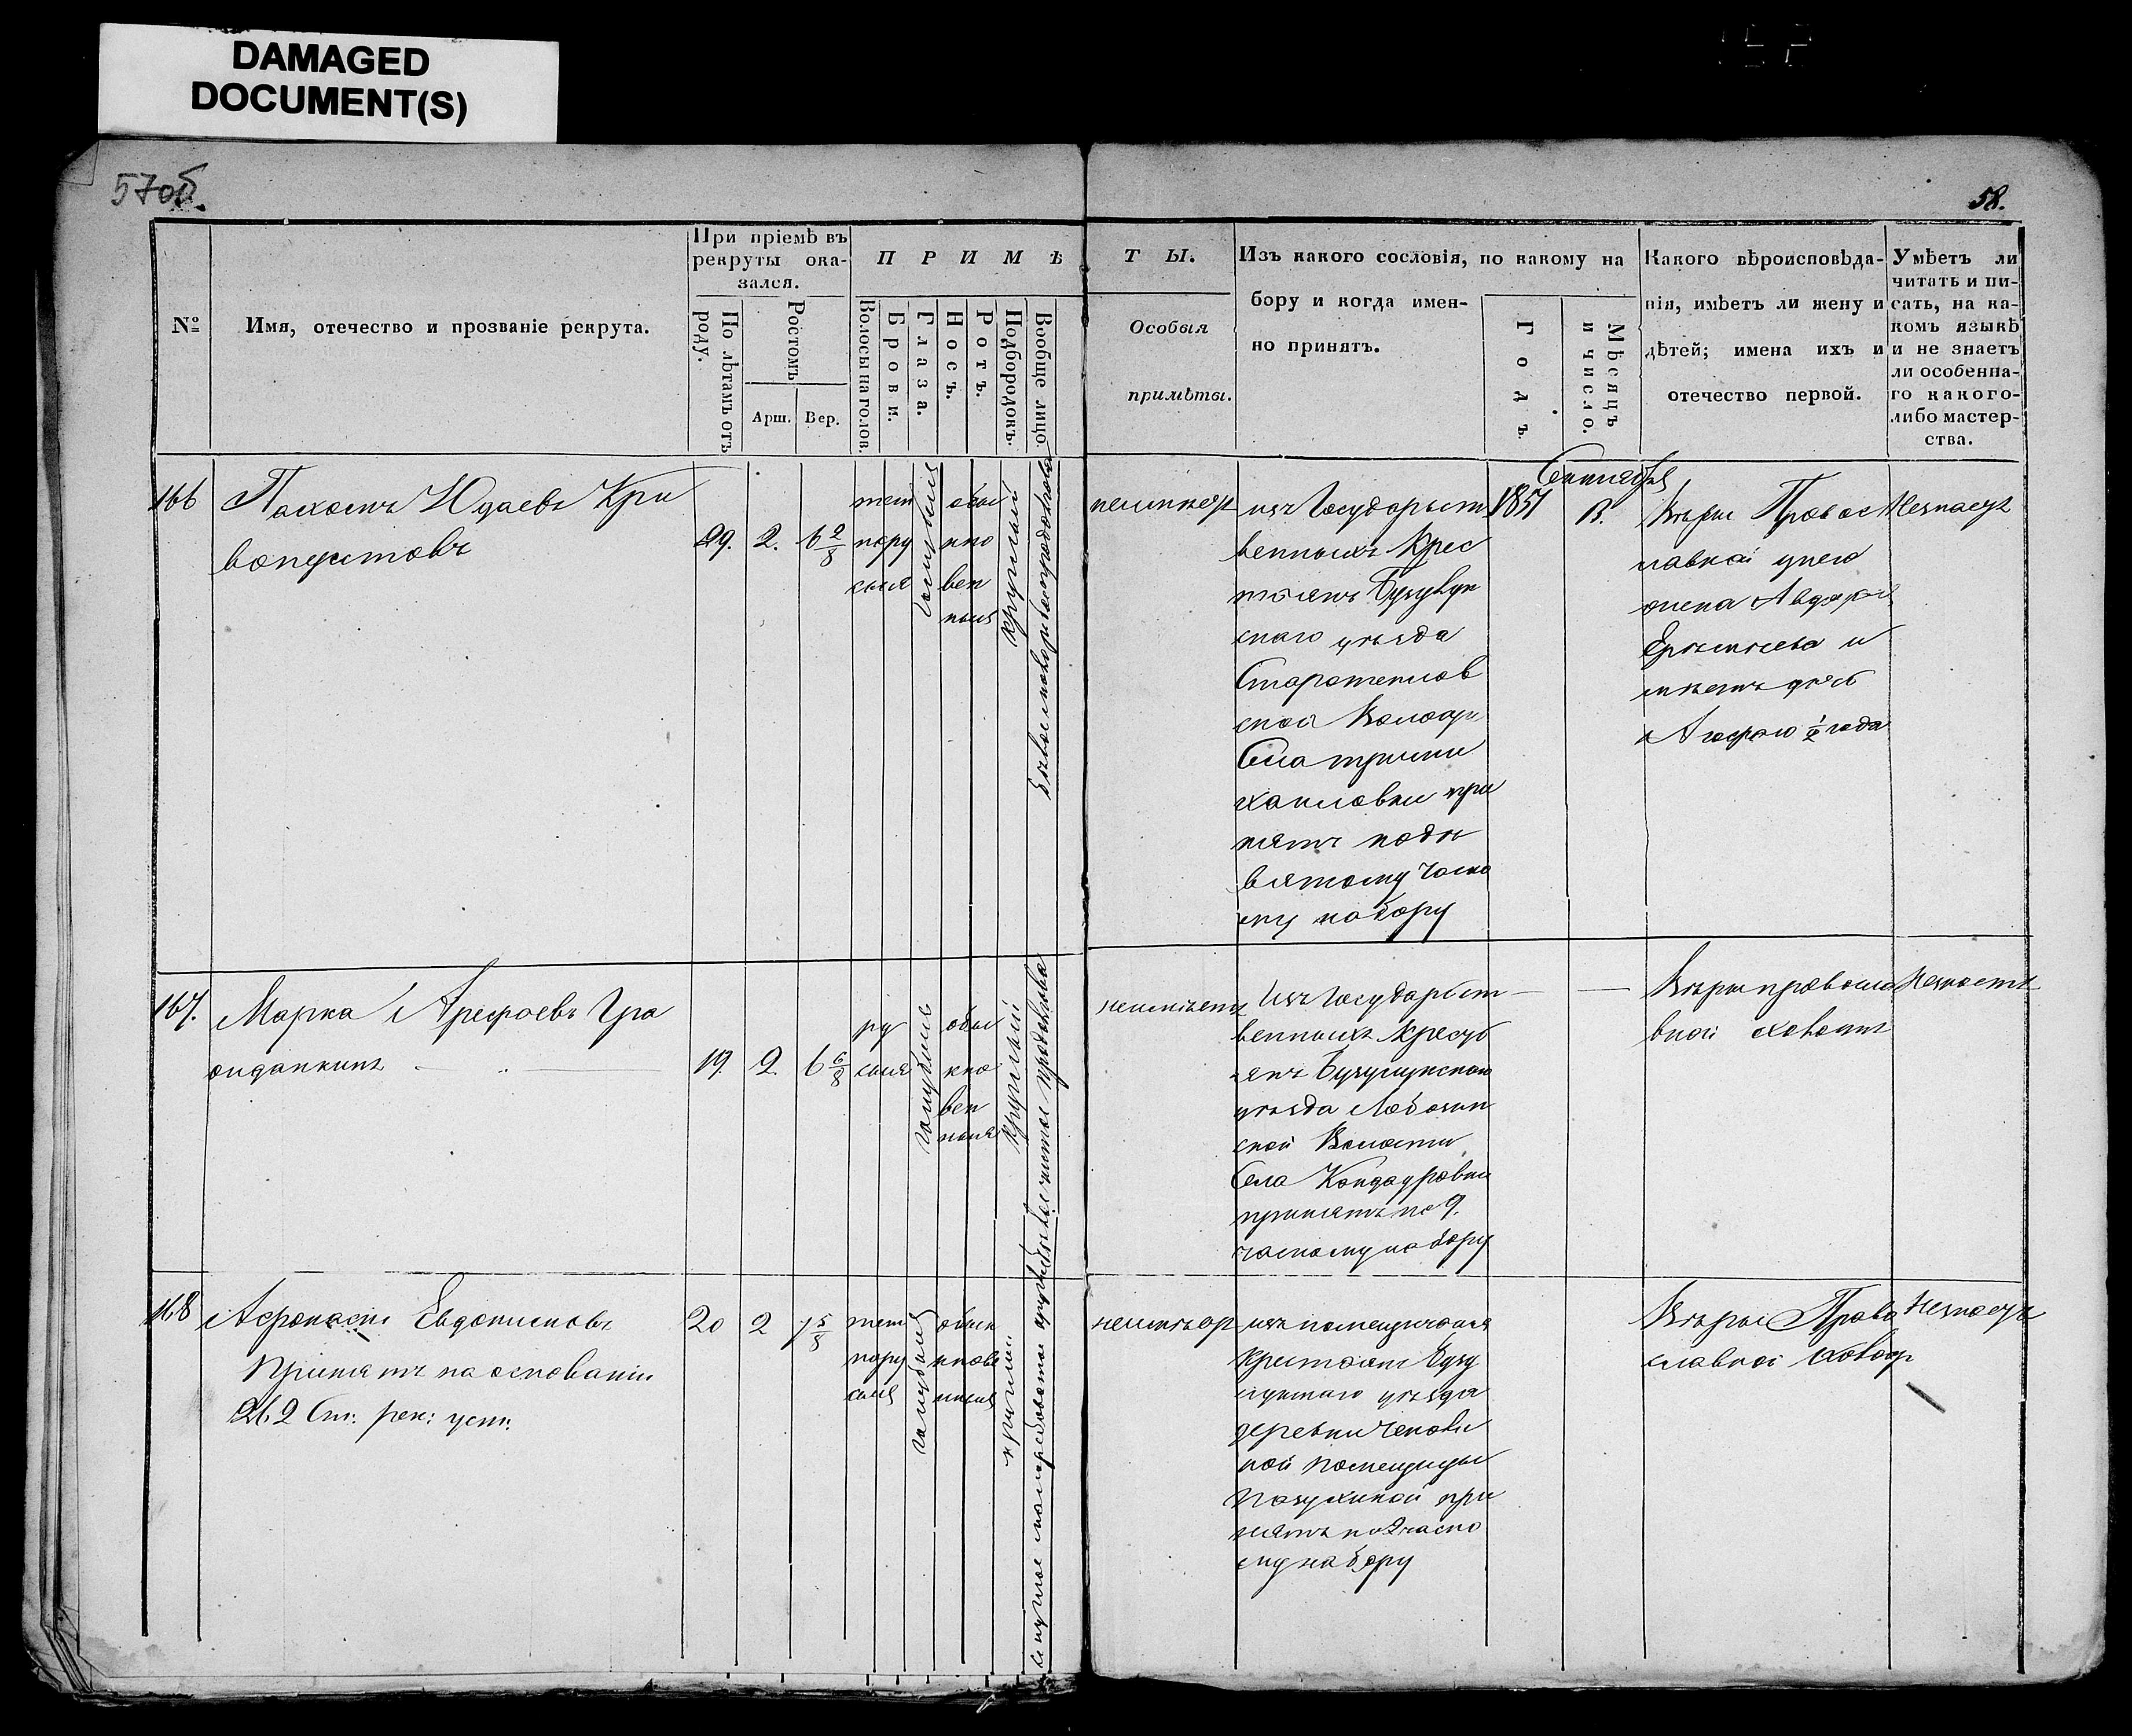 DAMAGED
DOCUMENT(S)
57об.
58.
№
Имя, отечество и прозваніе рекрута.
При пріемѣ въ
рекруты ока-
зался.
По лѣтамъ отъ
роду.
Ростомъ
Арш.
Вер.
П Р И М Ѣ
Волосы на голов.
Брови.
Глаза.
Носъ.
Ротъ.
Подбородокъ.
Вообще лицо.
Т Ы.
Особыя
примѣты.
Изъ какого сословія, по какому на
бору и когда имен-
но принятъ.
Годъ.
Мѣсяцъ
и число.
Какого вѣроисповѣда-
нія, имѣетъ ли жену и
дѣтей; имена ихъ и
отечество первой.
Умѣетъ ли
читать и пи-
сать, на ка-
комъ языкѣ
и не знаетъ
ли особенна-
го какого-
либо мастер-
ства.
166
Пахомъ Юдаевъ Кри
вопустовъ
29. 2. 6 2/8
тем
нору
сыя
обык
кно
вен
ныя
круглый
неимѣет
изъ Государст
венныхъ Крес
тьянъ Бузулук
скаго уѣзда
волости
Села
при
нятъ по де
вятому Част
ному набору
Сентября
1851
Вѣры Правос
лавной у него
жена
и
имѣетъ дочь
года
Незнаетъ
167.
Марка Арефьевъ Гра
жданкинъ
19. 2. 6 6/8
ру
сыя
голубые
обык
кно
вен
ныя
круглый
неимѣетъ
Изъ Государст
венныхъ Кресть
янъ Бузулукскаго
уѣзда Лабазин
ской Волости
Села Кандауровки
принятъ по 9.
частному набору
Вѣры правосла
вной холостъ
Незнаетъ
168
Афонасій Евдокимовъ
Принятъ на основаніи
262 Ст: рек: уст:
20 2 7 5/8
тем
нору
сыя
голубыя
обыкн
нове
нныя
круглый
неимѣет
изъ помещичьихъ
Крестьянъ Бузу
лукскаго уѣзда
деревни
ной помещицы
Пазухиной при
нятъ по 9 частно
му набору
Вѣры Право
славной холост
Незнаетъ